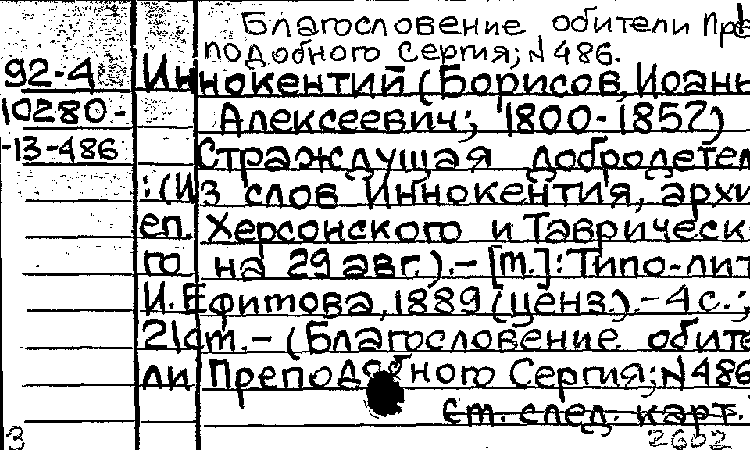 Благословение обители Пре
подобного Сергия; N 486.
92-4 Иннокентий (Борисов, Иоань
10280- Алексеевич; 1800-1857)
-13-486 Страждущая добродетел
: (Из слов Иннокентия, архи
еп. Херсонского и Таврическ
го на 29 авг.). - [М.]: Типо-лит
И. Ефимова, 1889 (ценз.). - 4 с.;
21 см. - (Благословение обите
ли Преподобного Сергия; N 486
См. след. карт.
3 2602